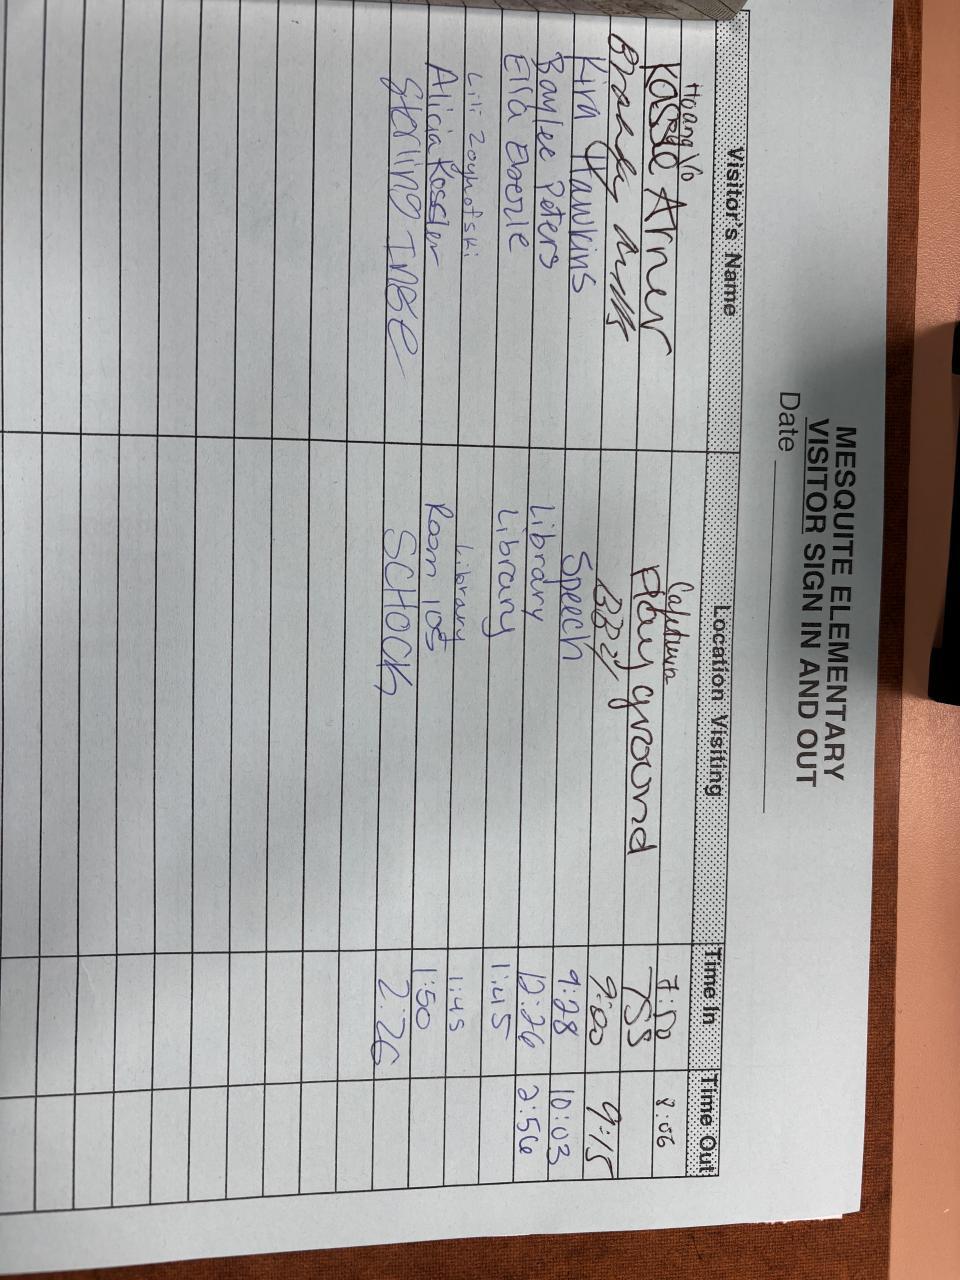 MESQUITE ELEMENTARY
VISITOR SIGN IN AND OUT
Date
Visitor's Name Location Visiting Time In Time Out
Hoang Vo 7:50 8:06
Kassie Arner Playground 755
Brandy 9:00 9:15
Kira Hawkins Speech 9:28 10:03
Baylee Peters Library 12:26 2:56
Ella Eberle Library 1:45
Lili Library 1:45
Alicia Kossler Room 105 1:50
Sterling INGE SCHOCK 2:26